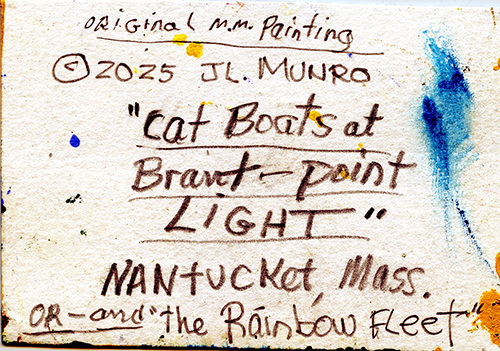 ORIGINAL M.M. Painting
© 2025 JL. MUNRO
"Cat Boats at
Brant-point
LIGHT"
NANtucket, Mass.
OR-and "the Rainbow FLeet"